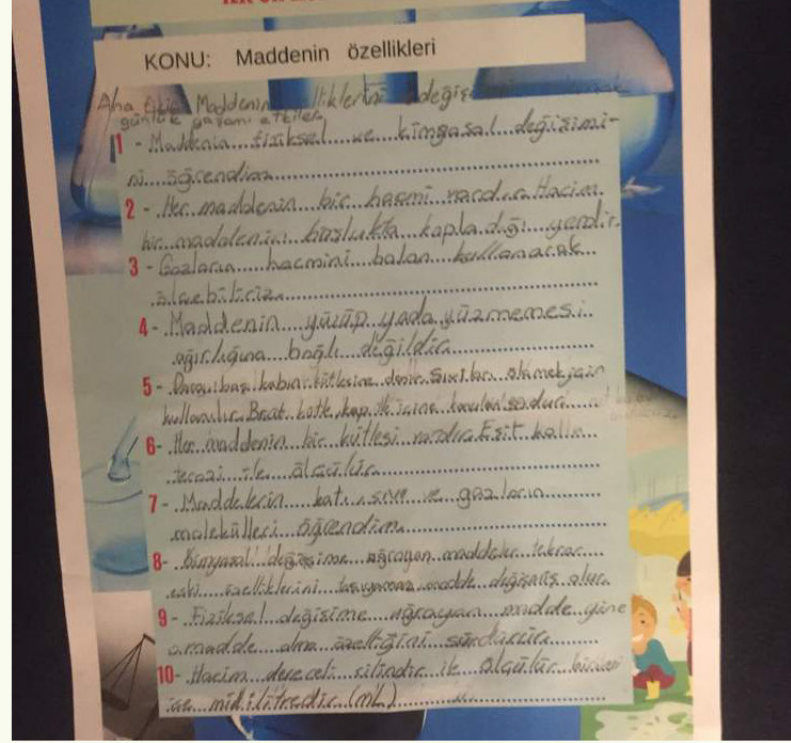 KONU: Maddenin özellikleri
Ana Fikir Maddenin özelliklerini değiş
günlük yaşamı etkiler
1 - Maddenin fiziksel ve kimyasal değişimi-
ni öğrendim
2 - Her maddenin bir hacmi vardır. Hacim
bir maddenin boşlukta kapladığı yerdir.
3 - Gazların hacmini balon kullanarak
ölçebiliriz
4 - Maddenin yüzüp yada yüzmemesi
ağırlığına bağlı değildir
5 - boş kabın kütlesine denir. Sıvıları ölçmek için
kullanılır. Brüt kütle kap ile içine
6- Her maddenin bir kütlesi vardır. Eşit kollu
terazi ile ölçülür
7 - Maddelerin katı, sıvı ve gazların
molekülleri öğrendim
8- Kimyasal değişime uğrayan maddeler tekrar
eski özelliklerini madde değişmiş olur
9 - Fiziksel değişime uğrayan madde yine
o madde olma özelliğini sürdürür
10- Hacim dereceli silindir ile ölçülür birimi
ise mililitredir (mL)